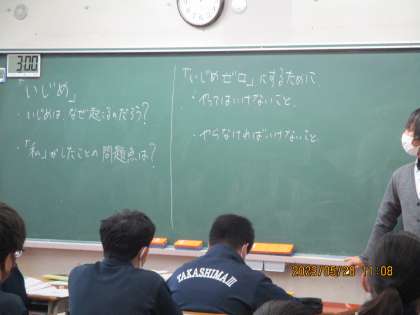 3:00
「いじめ」
・いじめは、なぜ起こるのだろう？
・「私」がしたことの問題点は？
「いじめゼロ」にするために
・やってはいけないこと
・やらなければいけないこと
TAKASHIMA III